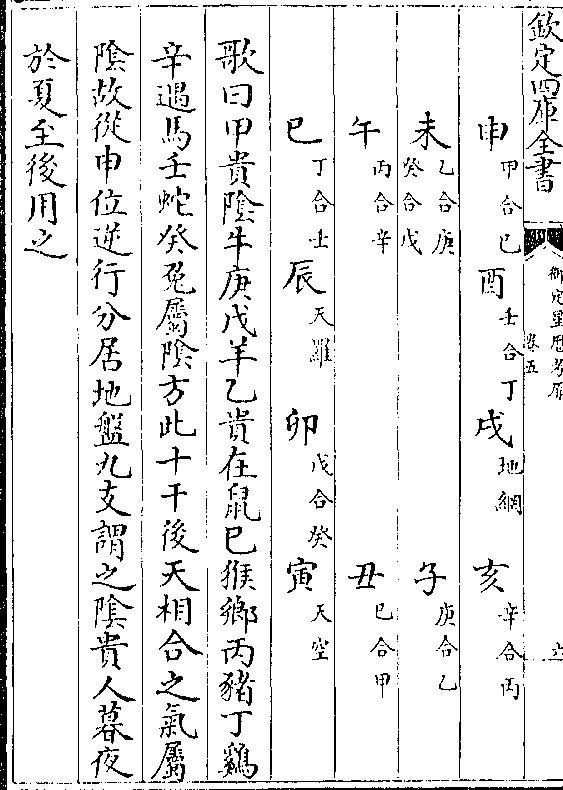 欽定四庫全書
御定星歴考原
卷五
申 甲合巳 酉 壬合丁 戌 地網 亥 辛合丙
未 乙合庚 癸合戊 子 庚合乙
午 丙合辛 丑 巳合甲
巳 丁合壬 辰 天羅 卯 戊合癸 寅 天空
歌曰甲貴陰牛庚戊羊乙貴在鼠巳猴鄉丙豬丁鷄
辛遇馬壬蛇癸兔屬陰方此十干後天相合之氣屬
陰故從申位逆行分居地盤九支謂之陰貴人暮夜
於夏至後用之